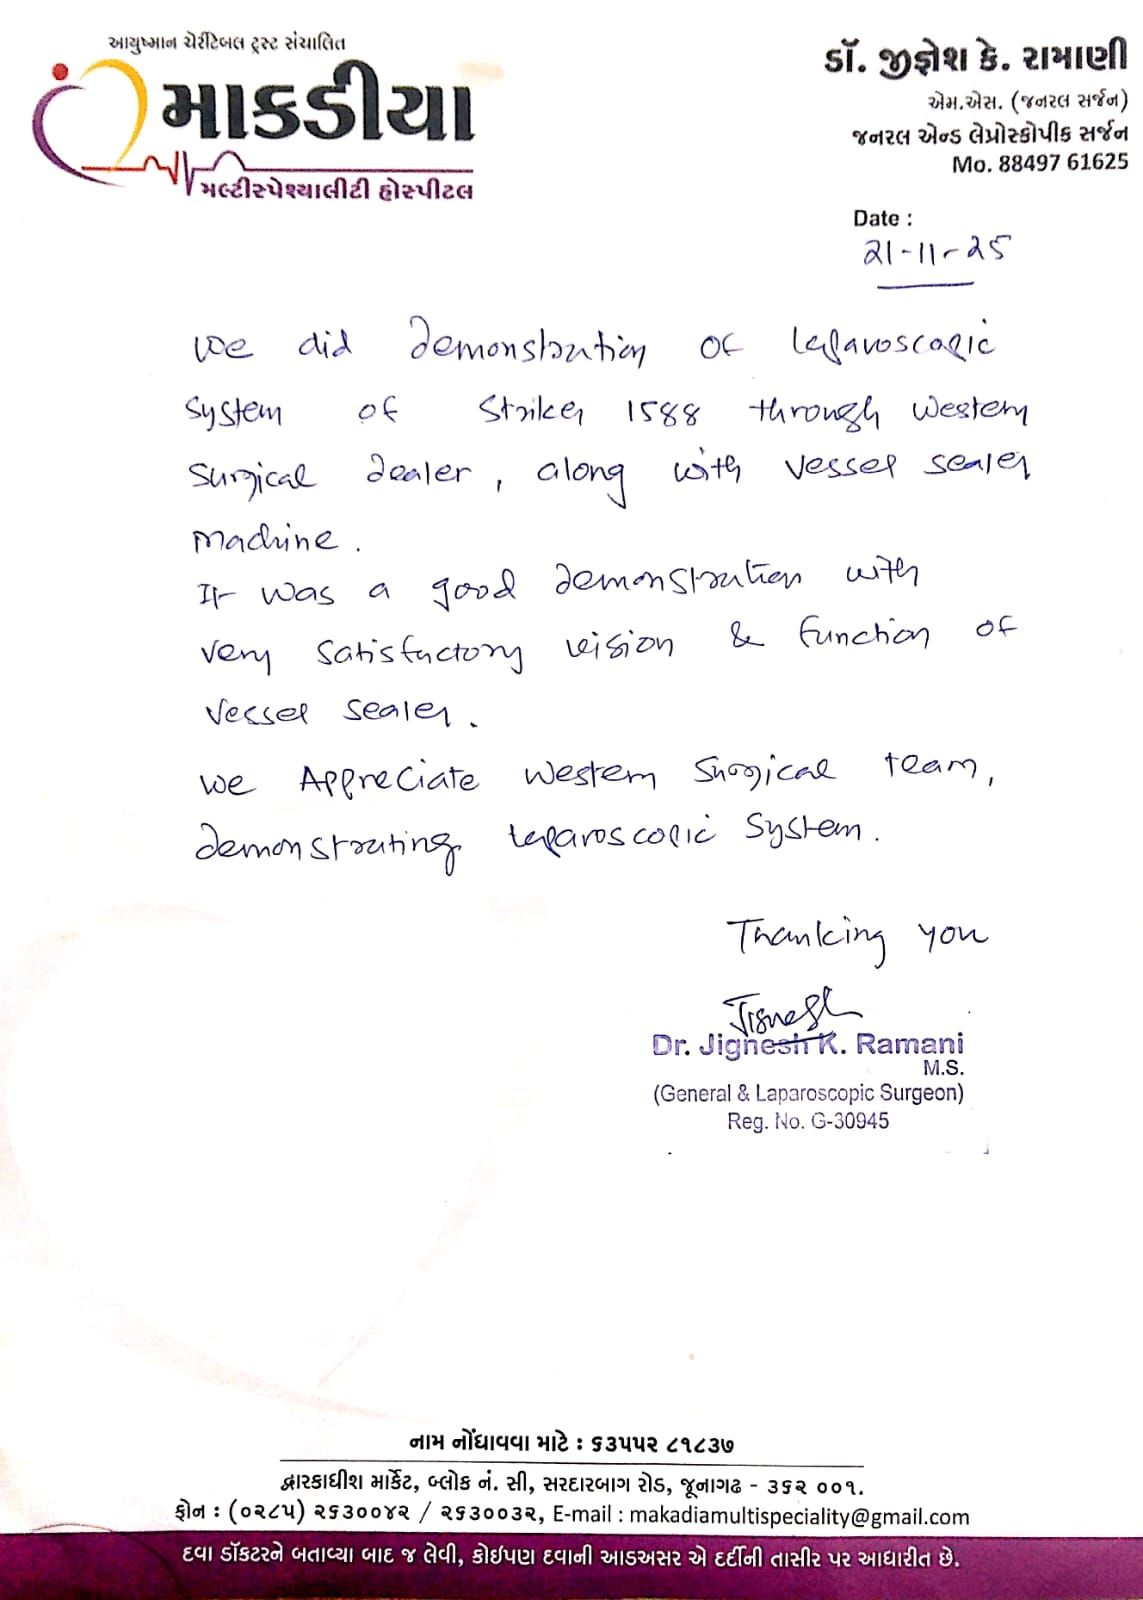 આયુષ્માન ચેરીટેબલ ટ્રસ્ટ સંચાલિત
માકડીયા
મલ્ટીસ્પેશ્યાલીટી હોસ્પીટલ
ડૉ. જીજ્ઞેશ કે. રામાણી
એમ.એસ. (જનરલ સર્જન)
જનરલ એન્ડ લેપ્રોસ્કોપીક સર્જન
Mo. 88497 61625
Date :
21-11-25
We did demonstration of Laparoscopic
System of Striker 1588 through Western
Surgical dealer, along with vessel sealer
machine.
It was a good demonstration with
very satisfactory vision & function of
vessel sealer.
We Appreciate Western Surgical team,
demonstrating laparoscopic System.
Thanking you
Jignesh
Dr. Jignesh K. Ramani
M.S.
(General & Laparoscopic Surgeon)
Reg. No. G-30945
નામ નોંધાવવા માટે : ૬૩૫૫૨ ૮૧૮૩૭
દ્વારકાધીશ માર્કેટ, બ્લોક નં. સી, સરદારબાગ રોડ, જૂનાગઢ - ૩૬૨ ૦૦૧.
ફોન : (૦૨૮૫) ૨૬૩૦૦૪૨ / ૨૬૩૦૦૩૨, E-mail : makadiamultispeciality@gmail.com
દવા ડૉકટરને બતાવ્યા બાદ જ લેવી, કોઈપણ દવાની આડઅસર એ દર્દીની તાસીર પર આધારીત છે.